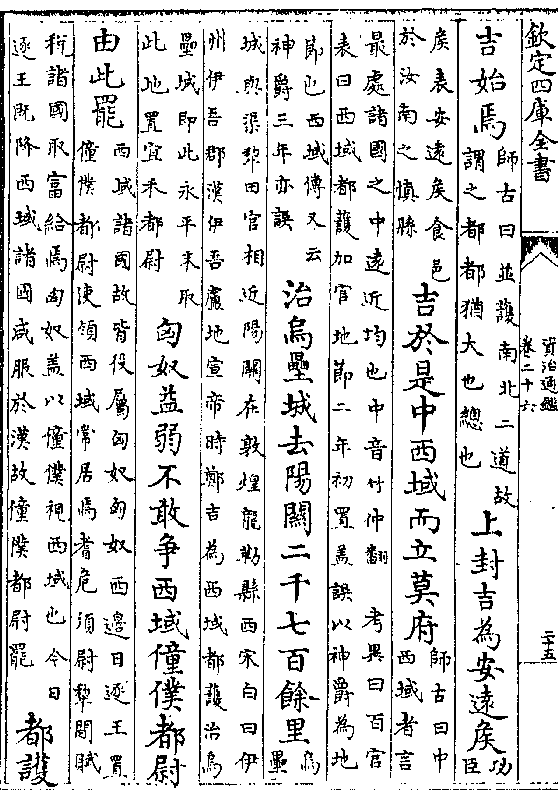 欽定四庫全書
資治通鑑
卷二十六
二十五
吉始焉
師古曰並護南北二道故
謂之都都猶大也總也
上封吉為安逺矦
功
臣
矦表安逺矦食邑
於汝南之慎縣
吉於是中西域而立莫府
師古曰中
西域者言
最處諸國之中逺近均也中音竹仲翻 考異曰百官
表曰西域都護加官地節二年初置葢誤以神爵為地
節也西域傳又云
神爵三年亦誤
治烏壘城去陽關二千七百餘里
烏
壘
城與渠犂田官相近陽關在敦煌龍勒縣西宋白曰伊
州伊吾郡漢伊吾盧地宣帝時鄭吉為西域都護治烏
壘城即此永平末取
此地置宜禾都尉
匈奴益弱不敢争西域僮僕都尉
由此罷
西域諸國故皆役屬匈奴匈奴西邊日逐王置
僮僕都尉使領西域常居焉耆危須尉犂間賦
税諸國取富給焉匈奴葢以僮僕視西域也今日
逐王既降西域諸國咸服於漢故僮僕都尉罷
都護